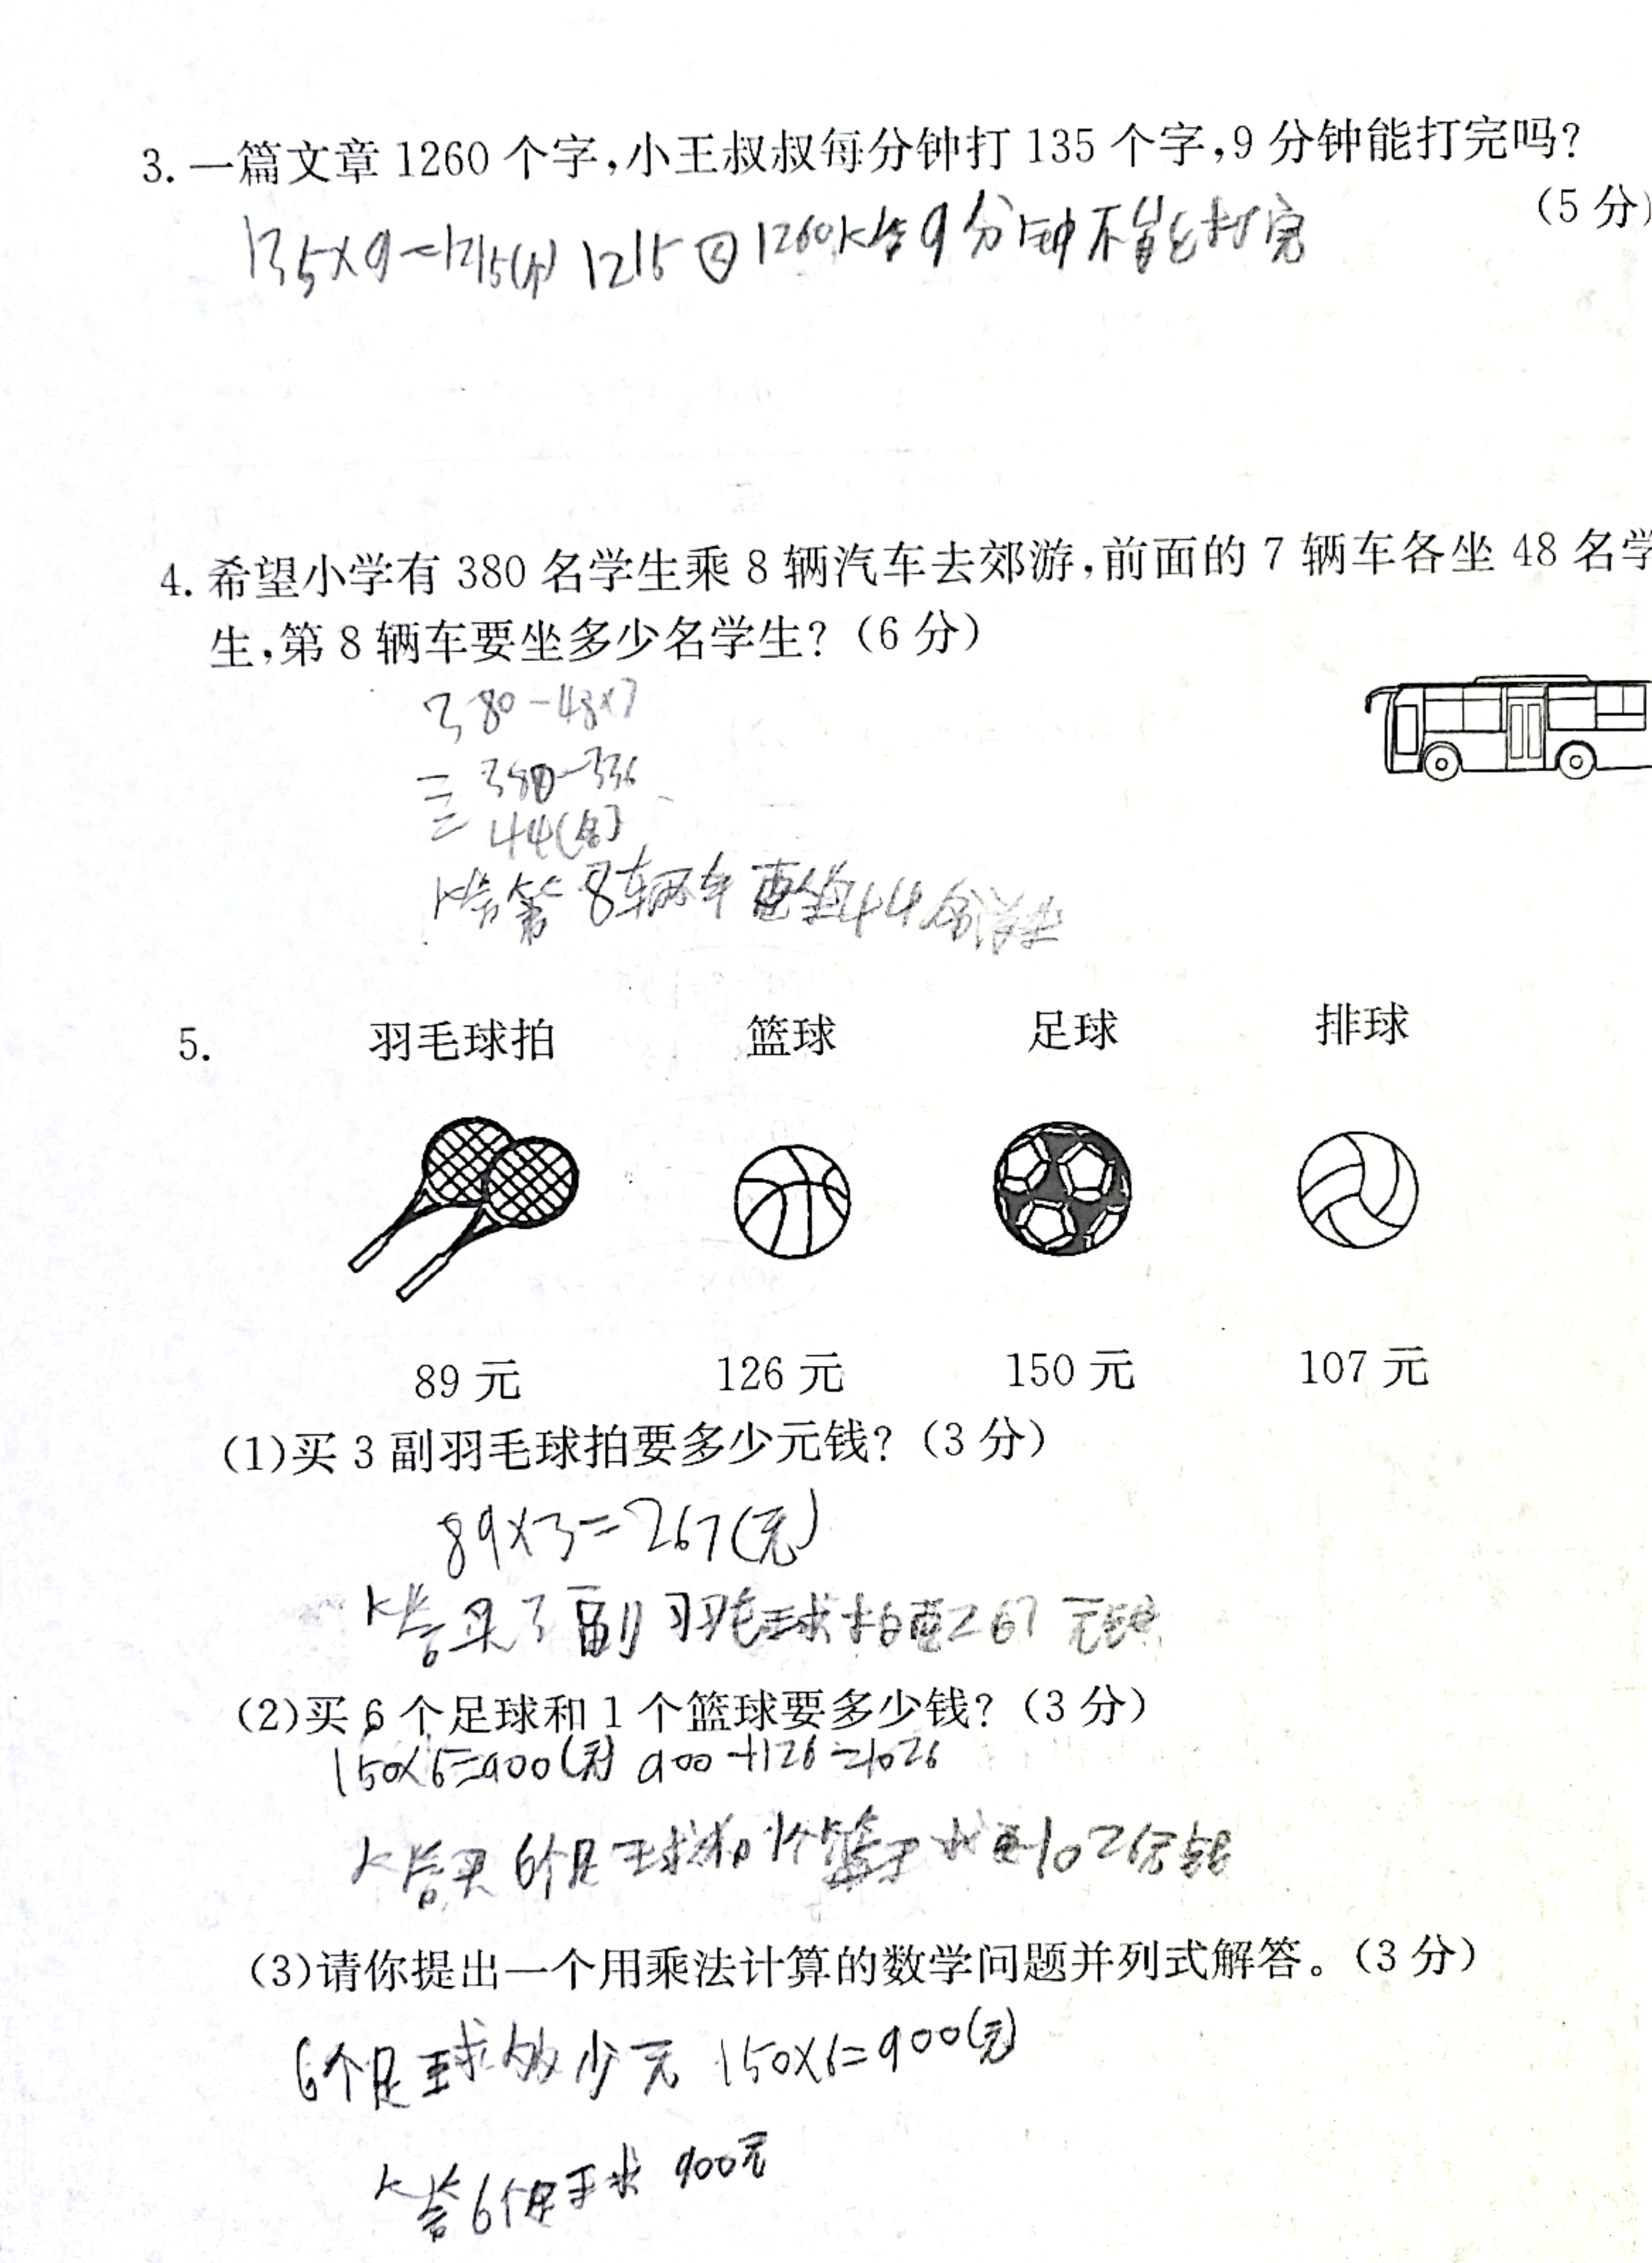 3. 一篇文章 1260 个字,小王叔叔每分钟打 135 个字,9 分钟能打完吗?
(5 分)
135×9=1215(个) 1215 < 1260 答9分钟不能打完
4. 希望小学有 380 名学生乘 8 辆汽车去郊游,前面的 7 辆车各坐 48 名学
生,第 8 辆车要坐多少名学生?(6 分)
380-48×7
= 380-336
= 44(名)
答第8辆车要坐44名学生
5. 羽毛球拍 篮球 足球 排球
89 元 126 元 150 元 107 元
(1)买 3 副羽毛球拍要多少元钱?(3 分)
89×3=267(元)
答买3副羽毛球拍要267元钱
(2)买 6 个足球和 1 个篮球要多少钱?(3 分)
150×6=900(元) 900+126=1026
答买6个足球和1个篮球要1026元钱
(3)请你提出一个用乘法计算的数学问题并列式解答。(3 分)
6个足球多少元 150×6=900(元)
答6个足球 900元